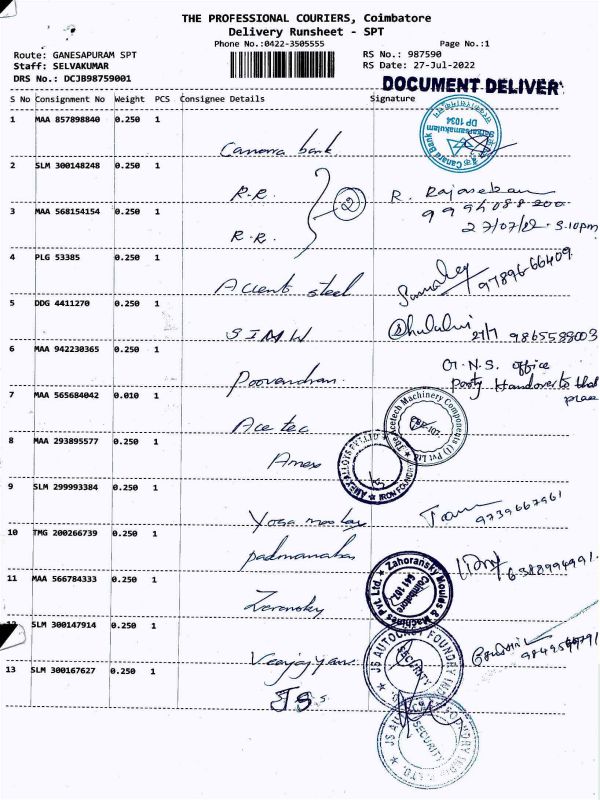 THE PROFESSIONAL COURIERS, Coimbatore
Delivery Runsheet - SPT
Phone No.:0422-3505555 Page No.:1
Route: GANESAPURAM SPT RS No.: 987590
Staff: SELVAKUMAR RS Date: 27-Jul-2022
DRS No.: DCJB98759001
DOCUMENT DELIVER
S No Consignment No Weight PCS Consignee Details Signature
1 MAA 857898840 0.250 1
Canara Bank
DP 1034
Canara bank
2 SLM 300148248 0.250 1
R.R. 2 R. Rajasekaran
3 MAA 568154154 0.250 1
27/07/22. 3.10pm
R.R.
4 PLG 53385 0.250 1
Accent steel 97896-66409
5 DDG 4411270 0.250 1
S I M W 27/7 9865588003
6 MAA 942230365 0.250 1
G.N.S. office
party Handover to that
place
7 MAA 565684042 0.010 1
The Acetech Machinery Components (I) Pvt Ltd
Ace tec
8 MAA 293895577 0.250 1
AMEX ALLOYS PVT LTD
IRON FOUNDRY
Amex
9 SLM 299993384 0.250 1
9739667961
10 TMG 200266739 0.250 1
padmanabas 6388994991
Zahoransky Moulds & Machines Pvt. Ltd.
Coimbatore
641 107.
11 MAA 566784333 0.250 1
SLM 300147914 0.250 1
JS AUTOCAST FOUNDRY
SECURITY
13 SLM 300167627 0.250 1
JS
JS AUTOCAST FOUNDRY
SECURITY